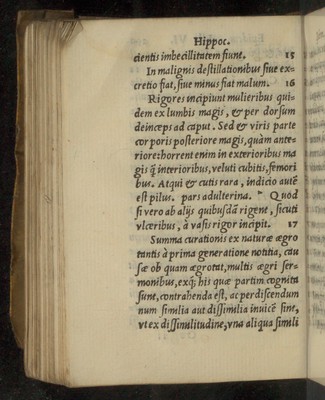 Hippoc.
cientis imbecillitatem fiunt. 15
In malignis destillationibus siue ex-
cretio fiat, siue minus fiat malum. 16
Rigores incipiunt mulieribus qui-
dem ex lumbis magis, & per dorsum
deinceps ad caput. Sed & viris parte
corporis posteriore magis, quàm ante-
riore: horrent enim in exterioribus ma
gis q̃ interioribus, veluti cubitis, femori
bus. Atqui & cutis rara, indicio autē
est pilus. pars adulterina. Quod
si vero ab alijs quibusdā rigent, sicuti
vlceribus, à vasis rigor incipit. 17
Summa curationis ex naturæ ægro
tantis à prima generatione notitia, cau
sæ ob quam ægrotat, multis ægri ser-
monibus, exq; his quæ partim cognita
sunt, contrahenda est, ac perdiscendum
num similia aut dissimilia inuicē sint,
vt ex dissimilitudine, vna aliqua simili